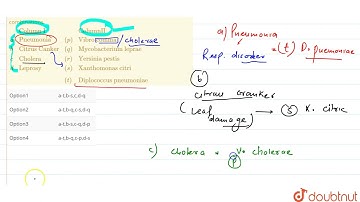 Column I Column II
Pneumonia (p) Vibrio cholerae / cholerae
Citrus Canker (q) Mycobacterium leprae
Cholera (r) Yersinia pestis
Leprosy (s) Xanthomonas citri
(t) Diplococcus pneumoniae
Option1 a-t,b-s,c,d-q
Option2 a-t,b-q,c-s,d-q
Option3 a-t,b-s,c-q,d-p
Option4 a-t,b-q,c-p,d-s
a) Pneumonia
Resp. disorder = (t) D. pneumoniae
(b)
citrus cranker
(Leaf damage) → (S) X. citric
c) cholera = V. cholerae
(p)
doubtnut